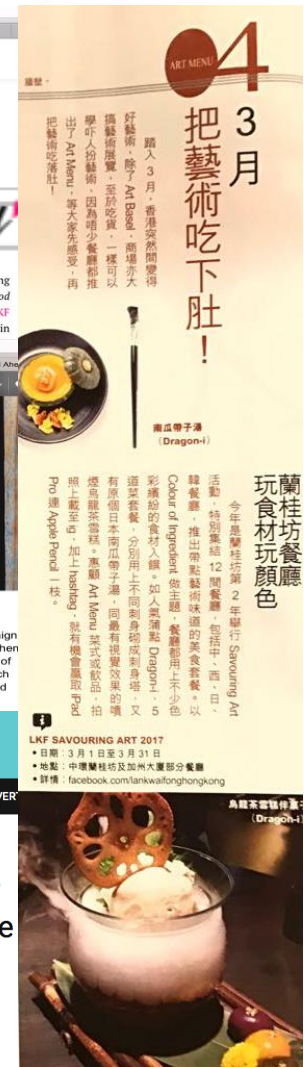 國壁。
ART MENU
04
3月
把藝術吃下肚！
踏入3月，香港突然間變得
好藝術，除了Art Basel，商場亦大
搞藝術展覽，至於吃貨，一樣可以
學吓人扮藝術，因為唔少餐廳都推
出了Art Menu，等大家先感受，再
把藝術吃落肚！
南瓜帶子湯
（Dragon-i）
蘭桂坊餐廳
玩食材玩顏色
今年是蘭桂坊第2年舉行Savouring Art
活動，特別集結12間餐廳，包括中、西、日、
韓餐廳，推出帶點藝術味道的美食套餐。以
Colour of Ingredient做主題，餐廳都用上不少色
彩繽紛的食材入饌。如人氣蒲點Dragon-i，5
道菜套餐，分別用上不同刺身砌成刺身塔，又
有原個日本南瓜帶子湯，同最有視覺效果的噴
煙烏龍茶雪糕。惠顧Art Menu菜式或飲品，拍
照上載至ig，加上hashtag，就有機會贏取iPad
Pro連Apple Pencil一枝。
i
LKF SAVOURING ART 2017
• 日期：3月1日至3月31日
• 地點：中環蘭桂坊及加州大廈部分餐廳
• 詳情：facebook.com/lankwaifonghongkong
烏龍茶雪糕伴菓子
（Dragon-i）
ng
od
KF
in
Ahe
sign
hen
of
ch
d
VERT
e